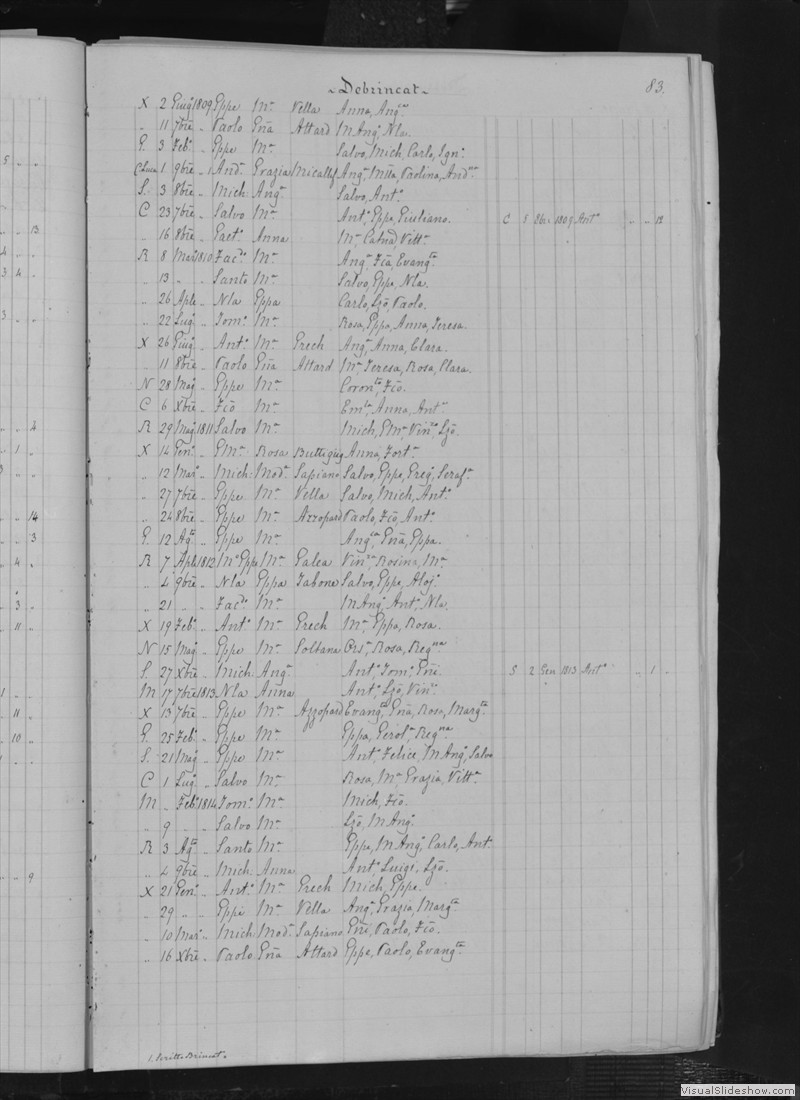 Debrincat 83.
X 2 Giug 1809 Gppe Ma Vella Anna, Angca
" 11 7bre " Paolo Gña Attard M Angi Nla.
G. 3 Feb° " Gppe Ma Salvo, Mich, Carlo, Ign°
1 9bre " And° Grazia Micallef Anga, Paolina, And
S. 3 8bre " Mich Anga Salvo, Ant°
C 23 7bre " Salvo Ma Ant° Gppe, Giuliano. C 5 1809 Ant° " " 13
" 16 8bre " Gaet° Anna Ma, Catna, Vitta
R 8 Mar° 1810 Jac° Ma Angi, Evangta
" 13 " " Santo Ma Salvo, Gppe, Nla.
" 26 Aple " Nla Gppa Carlo, Lzo, Paolo.
" 22 Lug° " Tom° Ma Rosa, Gppa, Anna, Teresa.
X 26 Giug° " Ant° Ma Grech Angi, Anna, Clara.
" 11 8bre " Paolo Gña Attard Ma, Teresa, Rosa, Clara.
N 28 Mag° " Gppe Ma Coronta, Fco.
C 6 Xbre " Fco Ma Emla, Anna, Anta
R 29 Mag° 1811 Salvo Ma Mich, G Ma, Vinzo, Lzo.
X 14 Gen° " G Ma Rosa Buttigieg Anna, Forta
" 12 Mar° " Mich Moda Sapiano Salvo, Gppe, Greg° Serafa
" 27 7bre " Gppe Ma Vella Salvo, Mich, Ant°
" 24 8bre " Gppe Ma Azzopard Paolo, Fco, Ant°
G. 12 Ag° " Gppe Ma Angca, Gña, Gppa.
R 7 Aple 1812 M° Gppe Ma Galea Vinza, Rosina, Ma
" 4 9bre " Nla Gppa Tabone Salvo, Gppe, Aloi
" 21 " " Jac° Ma M Angi, Ant° Nla.
X 19 Feb° " Ant° Ma Grech Ma, Gppa, Rosa.
N 15 Mag° " Gppe Ma Soltana Orsa, Rosa, Regna
S. 27 Xbre " Mich Anga Ant° Tom° Gñe. S 2 Gen 1813 Ant° " 1 "
M 17 7bre 1813 Nla Anna Ant° Lzo, Vinzo
X 13 7bre " Gppe Ma Azzopard Evangta, Gña, Rosa, Margta
G. 25 Feb° " Gppe Ma Gppa, Gerola, Regna
S. 21 Mag° " Gppe Ma Ant° Felice, M Angi, Salvo
C 1 Lug° " Salvo Ma Rosa, Ma, Grazia, Vitta
M " Feb° 1814 Tom° Ma Mich, Fco.
" 9 " " Salvo Ma Lzo, M Angi
R 3 Ag° " Santo Ma Gppe, M Angi, Carlo, Ant
" 4 9bre " Mich Anna Ant° Luigi, Lzo.
X 21 Gen° " Ant° Ma Grech Mich, Gppe.
" 29 " " Gppe Ma Vella Angi, Grazia, Margta
" 10 Mar° " Mich Moda Sapiano Gñe, Paolo, Fco.
" 16 Xbre " Paolo Gña Attard Gppe, Paolo, Evangta
Brincat.
VisualSlideshow.com